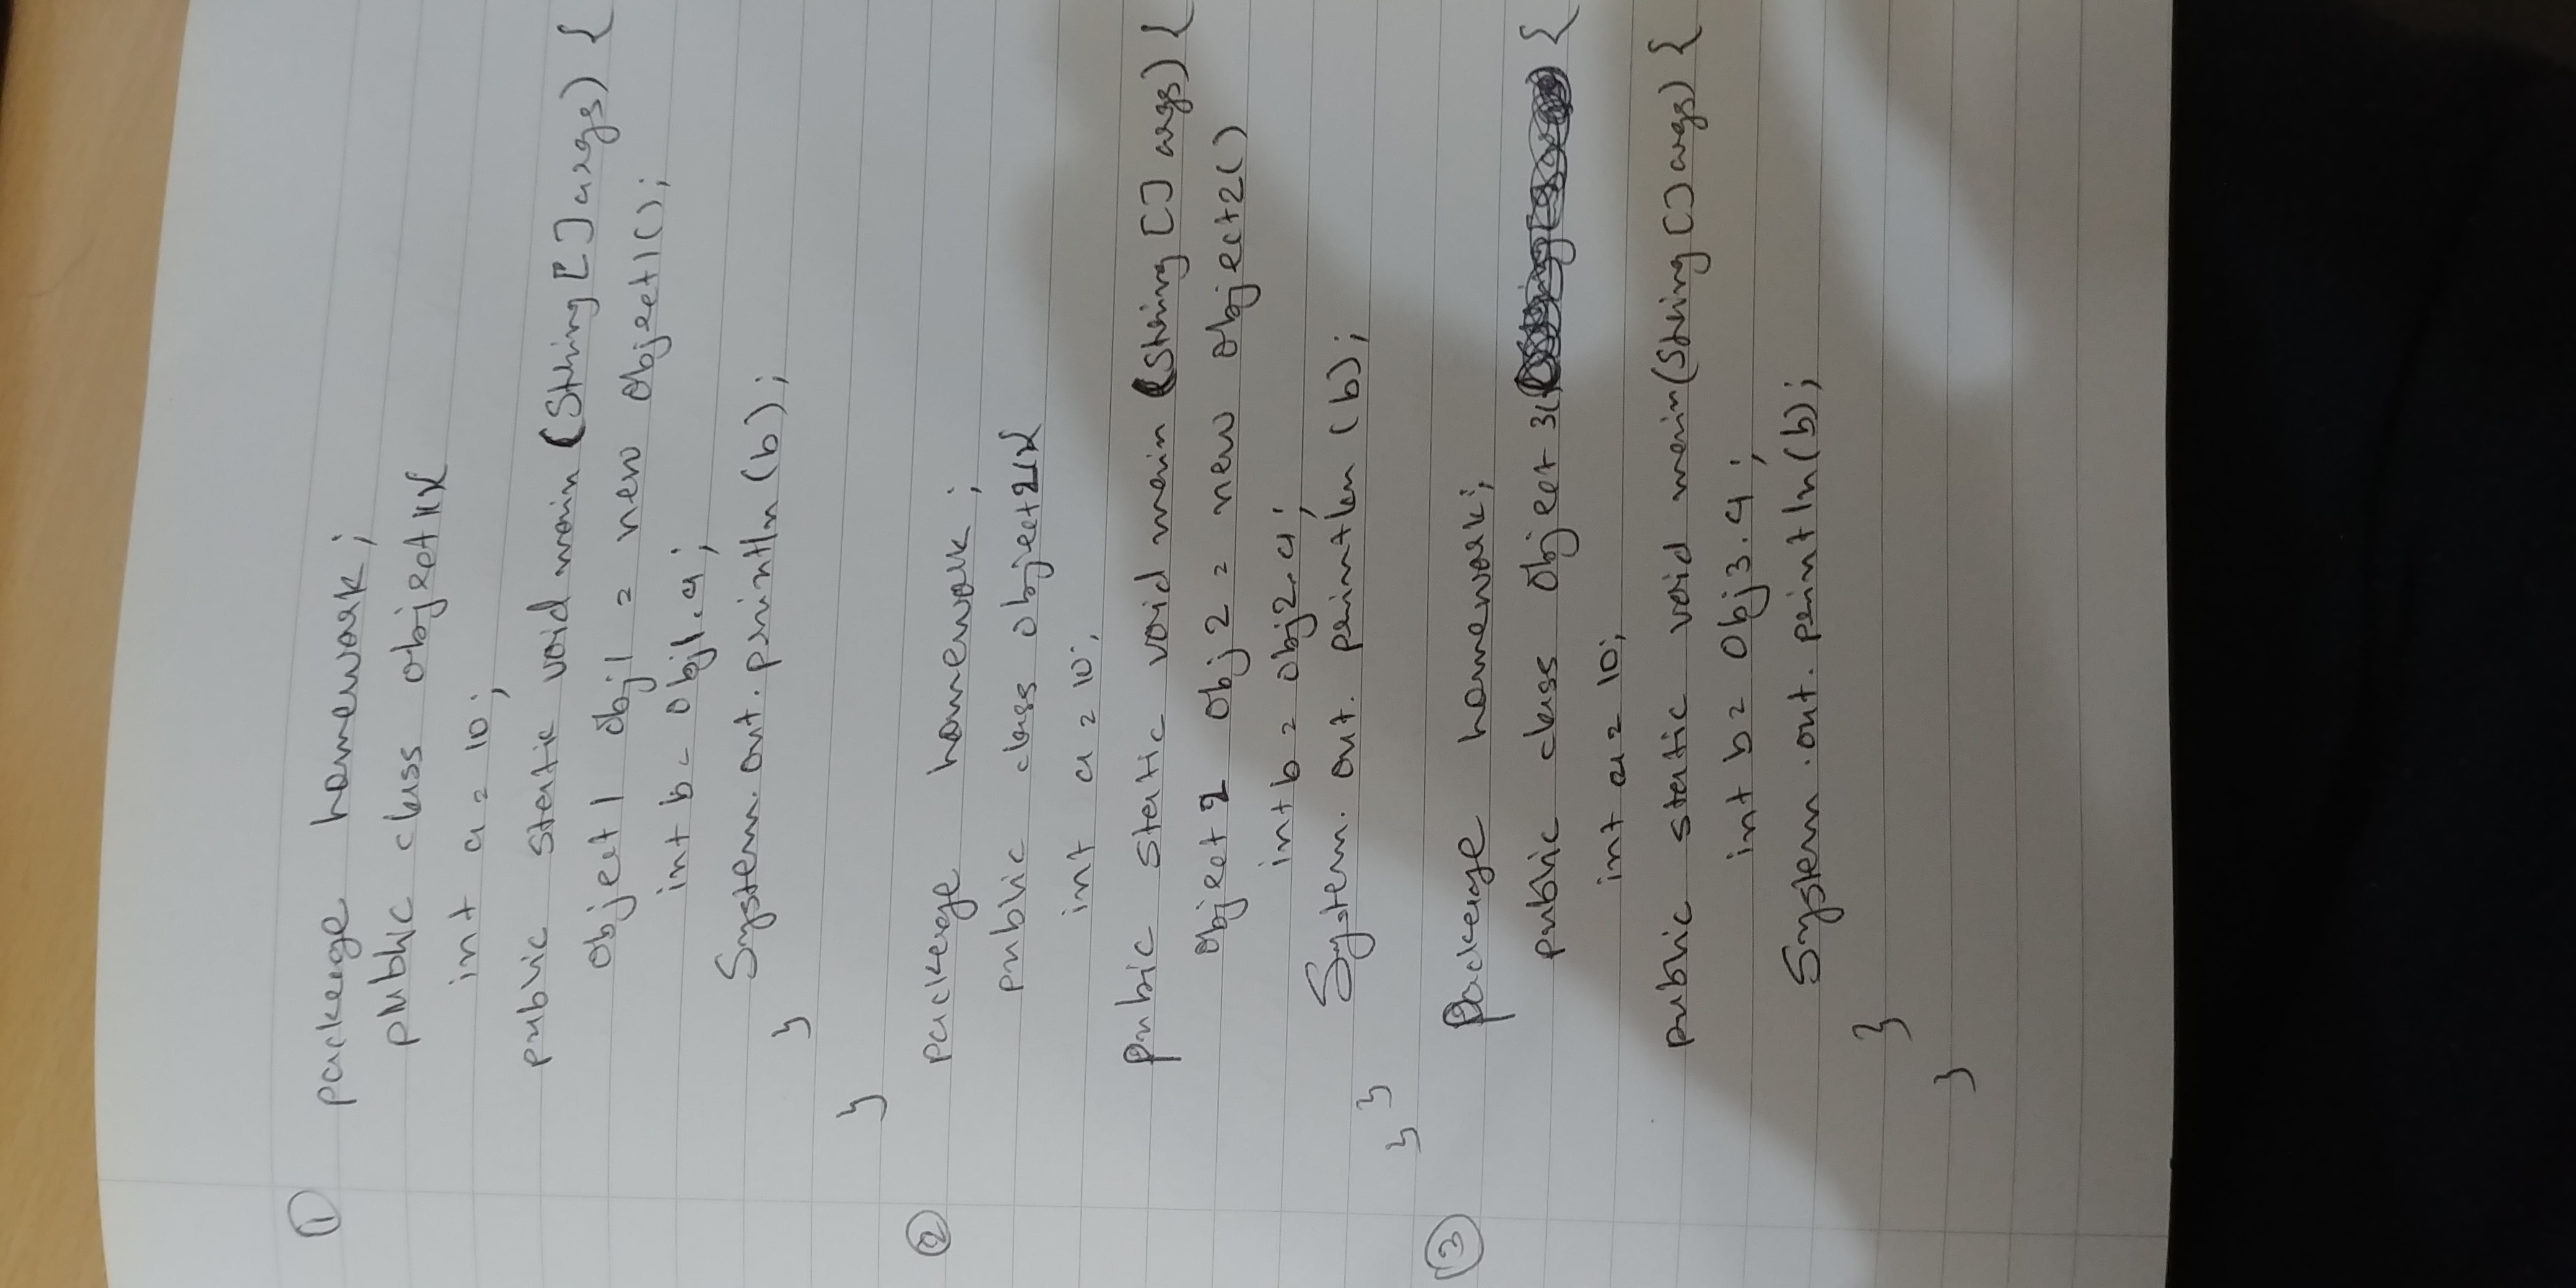 ① package homework;
public class object1{
int a = 10;
public static void main (String [] args) {
object1 obj1 = new object1();
int b = obj1.a;
System.out.println (b);
}
}
② package homework;
public class object2{
int a = 10;
pubic static void main (String [] args) {
object2 obj2 = new object2()
int b = obj2.a;
System.out.println (b);
} }
③ package homework;
public class object 3 {
int a = 10;
public static void main(String [] args) {
int b = obj3.a;
System.out.println(b);
}
}